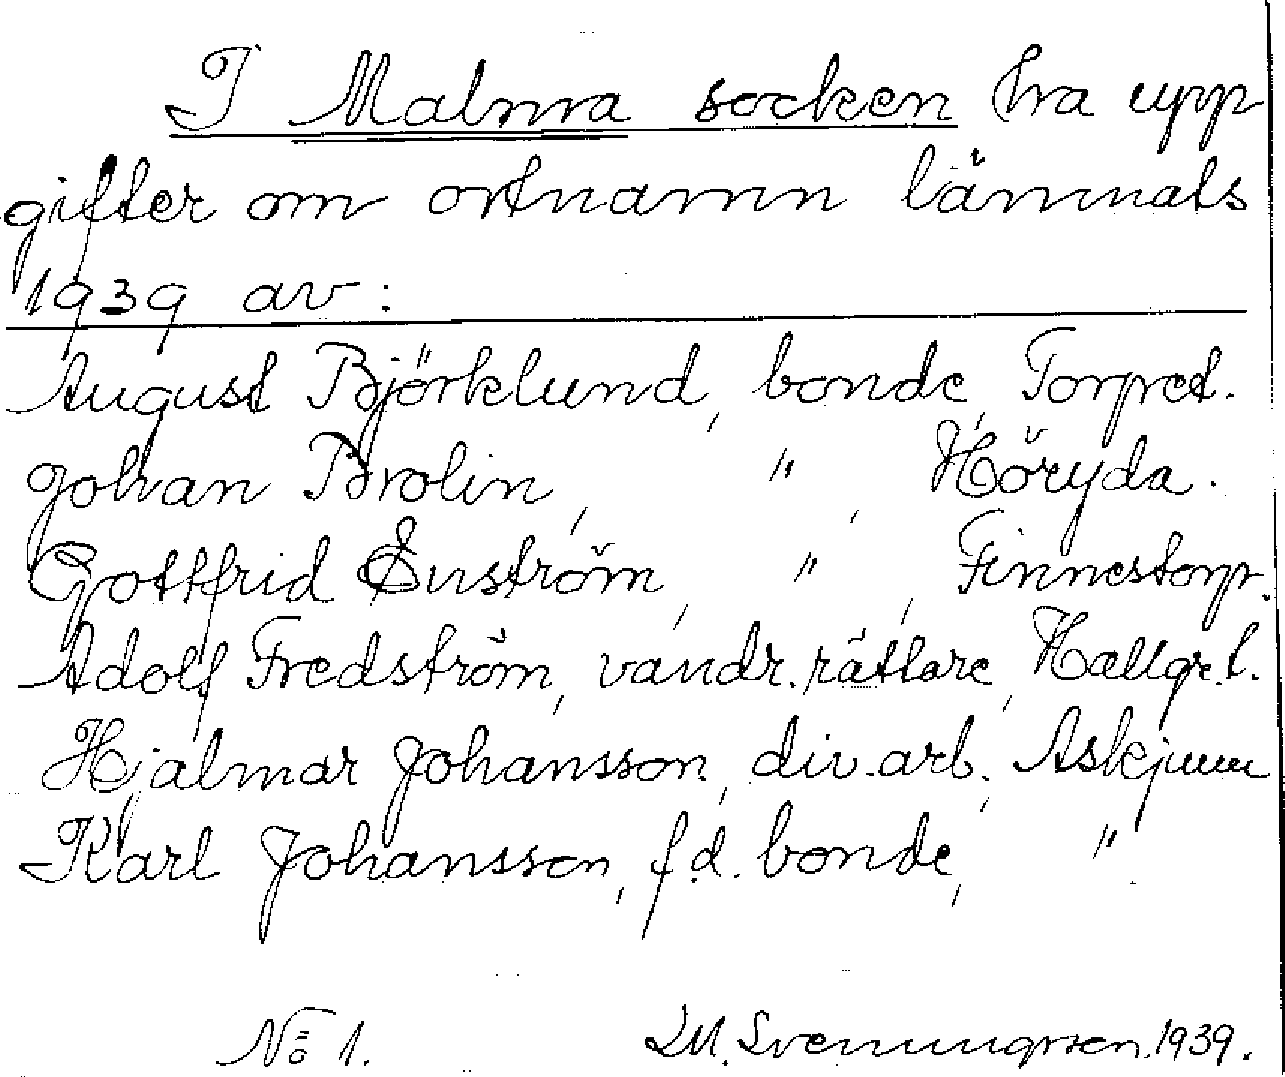 I Malma socken ha upp
gifter om ortnamn lämnats
1939 av:
August Björklund, bonde, Torpet.
Johan Brolin, " , Höryda.
Gottfrid Enström, " , Finnestorp.
Adolf Fredström, vandr. rättare, Hællgr. l.
Hjalmar Johansson, div. arb., Askjum
Karl Johansson, f.d. bonde, "
No 1. D.M. Svenungsson. 1939.